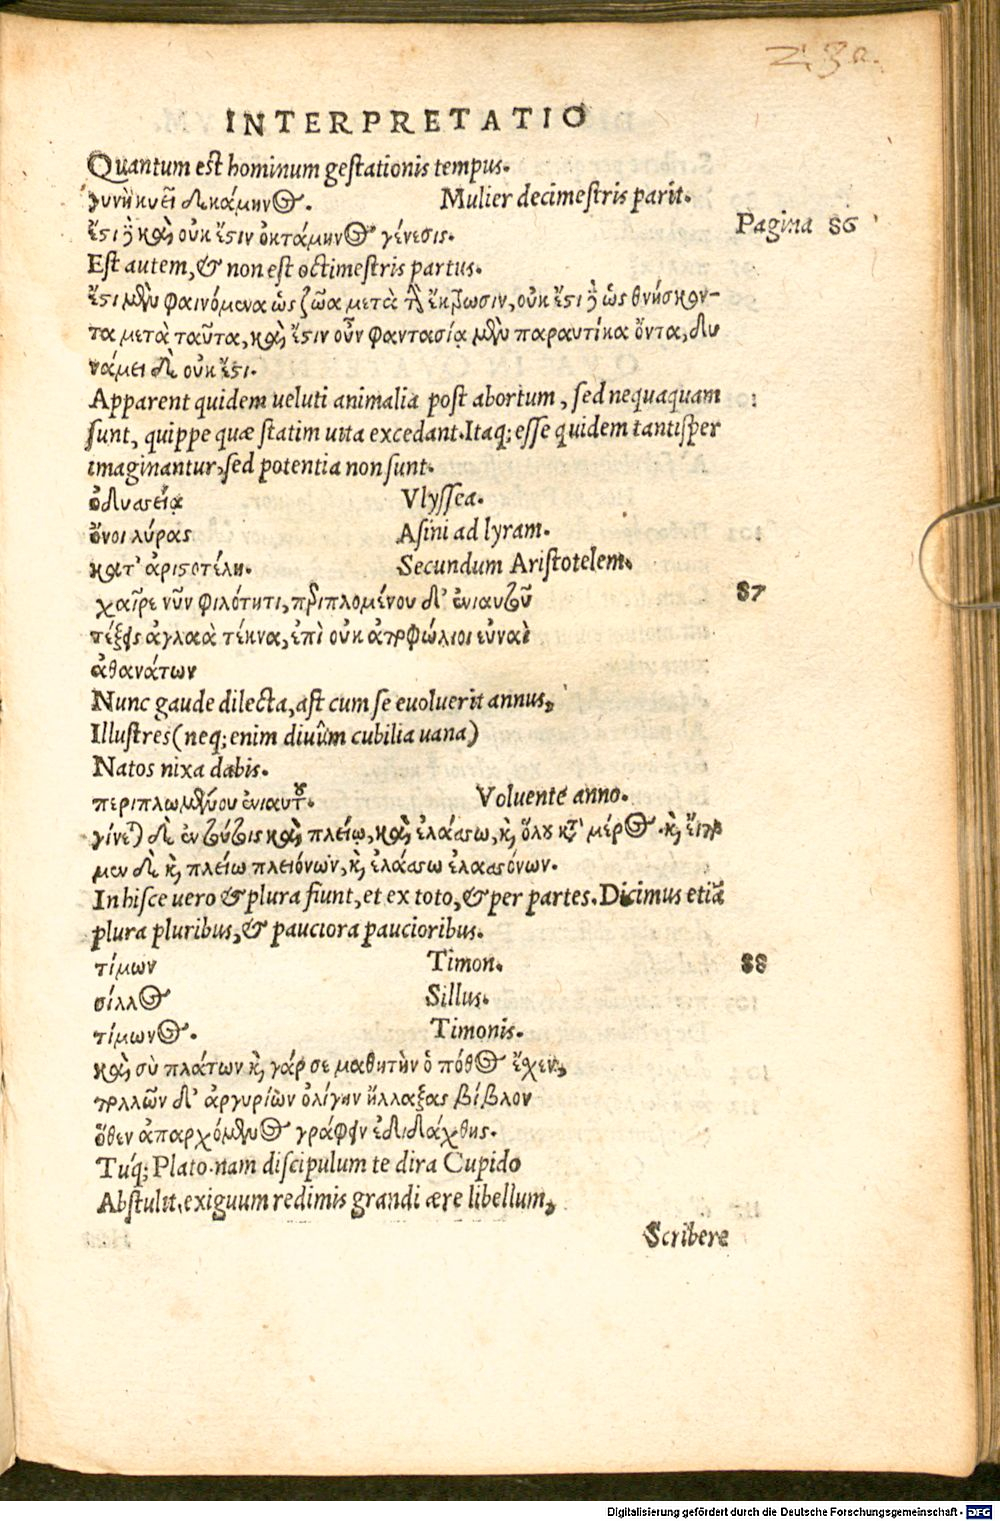 230.
INTERPRETATIO
Quantum est hominum gestationis tempus.
γυνὴ κυεῖ δεκάμηνος. Mulier decimestris parit.
ἔστι ἢ καὶ οὐκ ἔστιν ὀκτάμηνος γένεσις. Pagina 86
Est autem, & non est octimestris partus.
ἔστι μὲν φαινόμενα ὡς ζῶα μετὰ τὴν ἔκβωσιν, οὐκ ἔστι ἢ ὡς θνήσκον-
τα μετὰ ταῦτα, καὶ ἔστιν οὖν φαντασίᾳ μὲν παραυτίκα ὄντα, δυ
νάμει δὲ οὐκ ἔστι.
Apparent quidem ueluti animalia post abortum, sed nequaquam
sunt, quippe quæ statim uita excedant. Itaq; esse quidem tantisper
imaginantur, sed potentia non sunt.
ὀδυασείᾳ Vlyssea.
ὄνοι λύρας Asini ad lyram.
κατ' ἀριστοτέλη. Secundum Aristotelem.
χαῖρε νῦν φιλότητι, περιπλομένου δ' ἐνιαυτοῦ 87
τέξεις ἀγλαὰ τέκνα, ἐπὶ οὐκ ἀποφώλιοι εὐναὶ
ἀθανάτων
Nunc gaude dilecta, ast cum se euoluerit annus,
Illustres (neq; enim diuûm cubilia uana)
Natos nixa dabis.
περιπλωμένου ἐνιαυτοῦ. Voluente anno.
γίνεται δὲ ἐν τούτοις καὶ πλείω, καὶ ἐλάασω, καὶ ὅλου κατὰ μέρος. καὶ εἴπο
μεν δὲ καὶ πλείω πλειόνων, καὶ ἐλάασω ἐλαασόνων.
In hisce uero & plura fiunt, et ex toto, & per partes. Dicimus etiã
plura pluribus, & pauciora paucioribus.
τίμων Timon. 88
σίλλος Sillus.
τίμωνος. Timonis.
καὶ σὺ πλάτων καὶ γάρ σε μαθητὴν ὁ πόθος ἔχεν,
πολλῶν δ' ἀργυρίων ὀλίγην ἤλλαξας βίβλον
ὅθεν ἀπαρχόμενος γράφειν ἐδιδάχθης.
Túq; Plato. nam discipulum te dira Cupido
Abstulit, exiguum redimis grandi ære libellum,
Scribere
Digitalisierung gefördert durch die Deutsche Forschungsgemeinschaft - DFG